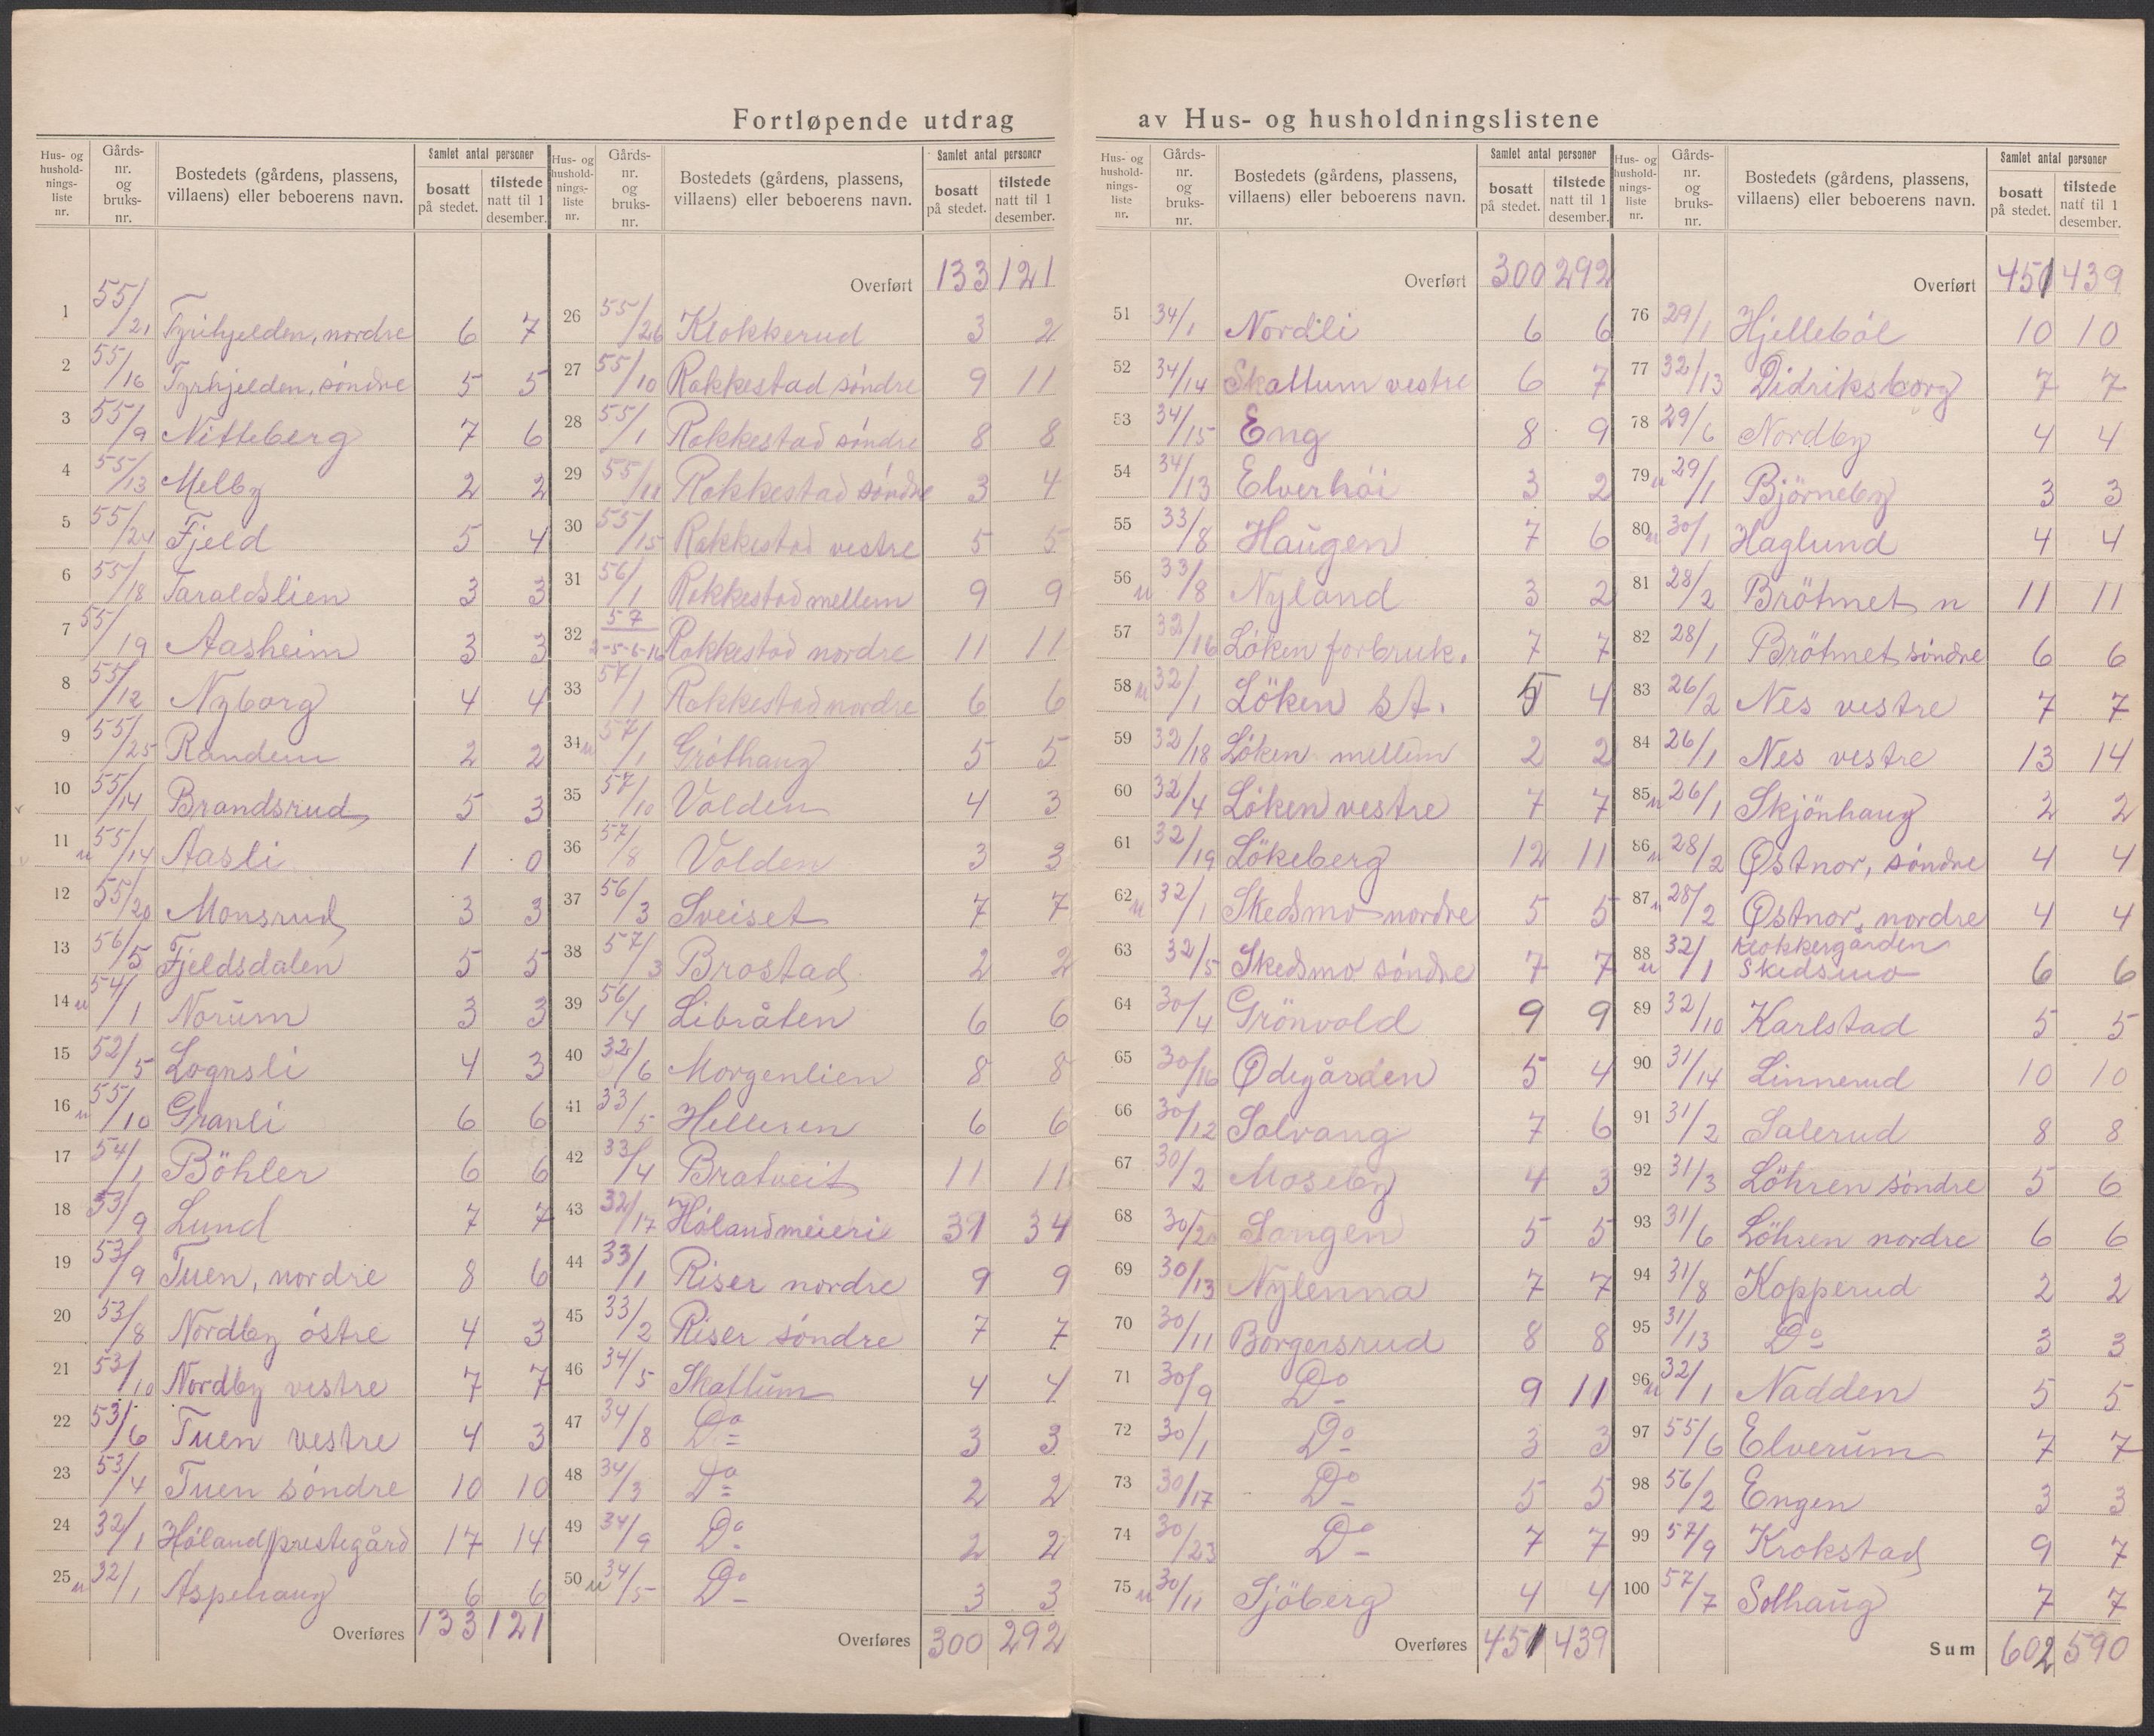 Fortløpende utdrag av Hus- og husholdningslistene
Hus- og hushold-nings-liste nr. Gårds-nr. og bruks-nr. Bostedets (gårdens, plassens, villaens) eller beboerens navn. Samlet antal personer bosatt på stedet. tilstede natt til 1 desember.
1 55/21 Tyrihjelden, nordre 6 7
2 55/16 Tyrihjelden, söndre 5 5
3 55/9 Nitteberg 7 6
4 55/13 Melby 2 2
5 55/24 Fjeld 5 4
6 55/18 Taraldslien 3 3
7 55/19 Aasheim 3 3
8 55/12 Nyborg 4 4
9 55/25 Randem 2 2
10 55/14 Brandsrud 5 3
11 u 55/14 Aasli 1 0
12 55/20 Monsrud 3 3
13 56/5 Fjeldsdalen 5 5
14 u 54/1 Norum 3 3
15 52/5 Lognsli 4 3
16 u 55/10 Granli 6 6
17 54/1 Böhler 6 6
18 53/9 Lund 7 7
19 53/9 Tuen, nordre 8 6
20 53/8 Nordby östre 4 3
21 53/10 Nordby vestre 7 7
22 53/6 Tuen vestre 4 3
23 53/4 Tuen söndre 10 10
24 32/1 Hölandprestegård 17 14
25 u 32/1 Aspehaug 6 6
Overføres 133 121
Hus- og hushold-nings-liste nr. Gårds-nr. og bruks-nr. Bostedets (gårdens, plassens, villaens) eller beboerens navn. Samlet antal personer bosatt på stedet. tilstede natt til 1 desember.
Overført 133 121
26 55/26 Klokkerud 3 2
27 55/10 Rakkestad söndre 9 11
28 55/1 Rakkestad söndre 8 8
29 55/11 Rakkestad söndre 3 4
30 55/15 Rakkestad vestre 5 5
31 56/1 Rakkestad mellem 9 9
32 57/2-5-6-16 Rakkestad nordre 11 11
33 57/1 Rakkestad nordre 6 6
34 u 57/1 Gröthaug 5 5
35 57/10 Volden 4 3
36 57/8 Volden 3 3
37 56/3 Sveiset 7 7
38 57/3 Brostad 2 2
39 56/4 Libråten 6 6
40 32/6 Morgenlien 8 8
41 33/5 Helleren 6 6
42 33/4 Bratveit 11 11
43 32/17 Hölandmeieri 31 34
44 33/1 Riser nordre 9 9
45 33/2 Riser söndre 7 7
46 34/5 Skattum 4 4
47 34/8 Do 3 3
48 34/3 Do 2 2
49 34/9 Do 2 2
50 u 34/5 Do 3 3
Overføres 300 292
Hus- og hushold-nings-liste nr. Gårds-nr. og bruks-nr. Bostedets (gårdens, plassens, villaens) eller beboerens navn. Samlet antal personer bosatt på stedet. tilstede natt til 1 desember.
Overført 300 292
51 34/1 Nordli 6 6
52 34/14 Skattum vestre 6 7
53 34/15 Eng 8 9
54 34/13 Elverhöi 3 2
55 33/8 Haugen 7 6
56 u 33/8 Nyland 3 2
57 32/16 Löken forbruk. 7 7
58 u 32/1 Löken st. 5 4
59 32/18 Löken mellem 2 2
60 32/4 Löken vestre 7 7
61 32/19 Lökeberg 12 11
62 u 32/1 Skedsmo nordre 5 5
63 32/5 Skedsmo söndre 7 7
64 30/4 Grönvold 9 9
65 30/16 Ødegården 5 4
66 30/12 Solvang 7 6
67 30/2 Moseby 4 3
68 30/20 Sangen 5 5
69 30/13 Nylenna 7 7
70 30/11 Borgersrud 8 8
71 30/9 Do 9 11
72 30/1 Do 3 3
73 30/17 Do 5 5
74 30/23 Do 7 7
75 u 30/11 Sjöberg 4 4
Overføres 451 439
Hus- og hushold-nings-liste nr. Gårds-nr. og bruks-nr. Bostedets (gårdens, plassens, villaens) eller beboerens navn. Samlet antal personer bosatt på stedet. tilstede natt til 1 desember.
Overført 451 439
76 29/1 Hjellebøl 10 10
77 32/13 Didriksborg 7 7
78 29/6 Nordby 4 4
79 u 29/1 Björneby 3 3
80 u 30/1 Haglund 4 4
81 28/2 Bröthnet n 11 11
82 28/1 Bröthnet söndre 6 6
83 26/2 Nes vestre 7 7
84 26/1 Nes vestre 13 14
85 u 26/1 Skjönhaug 2 2
86 u 28/2 Østnor, söndre 4 4
87 u 28/2 Østnor, nordre 4 4
88 u 32/1 Klokkergården Skedsmo 6 6
89 32/10 Karlstad 5 5
90 31/14 Linnerud 10 10
91 31/2 Salerud 8 8
92 31/3 Löhren söndre 5 6
93 31/6 Löhren nordre 6 6
94 31/8 Kopperud 2 2
95 31/13 Do 3 3
96 u 32/1 Nadden 5 5
97 55/6 Elverum 7 7
98 56/2 Engen 3 3
99 57/9 Krokstad 9 7
100 57/7 Solhaug 7 7
Sum 602 590